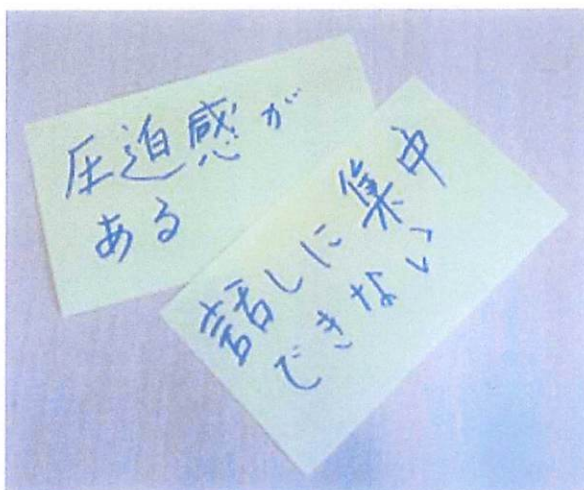 圧迫感が
ある
話しに集中
できない